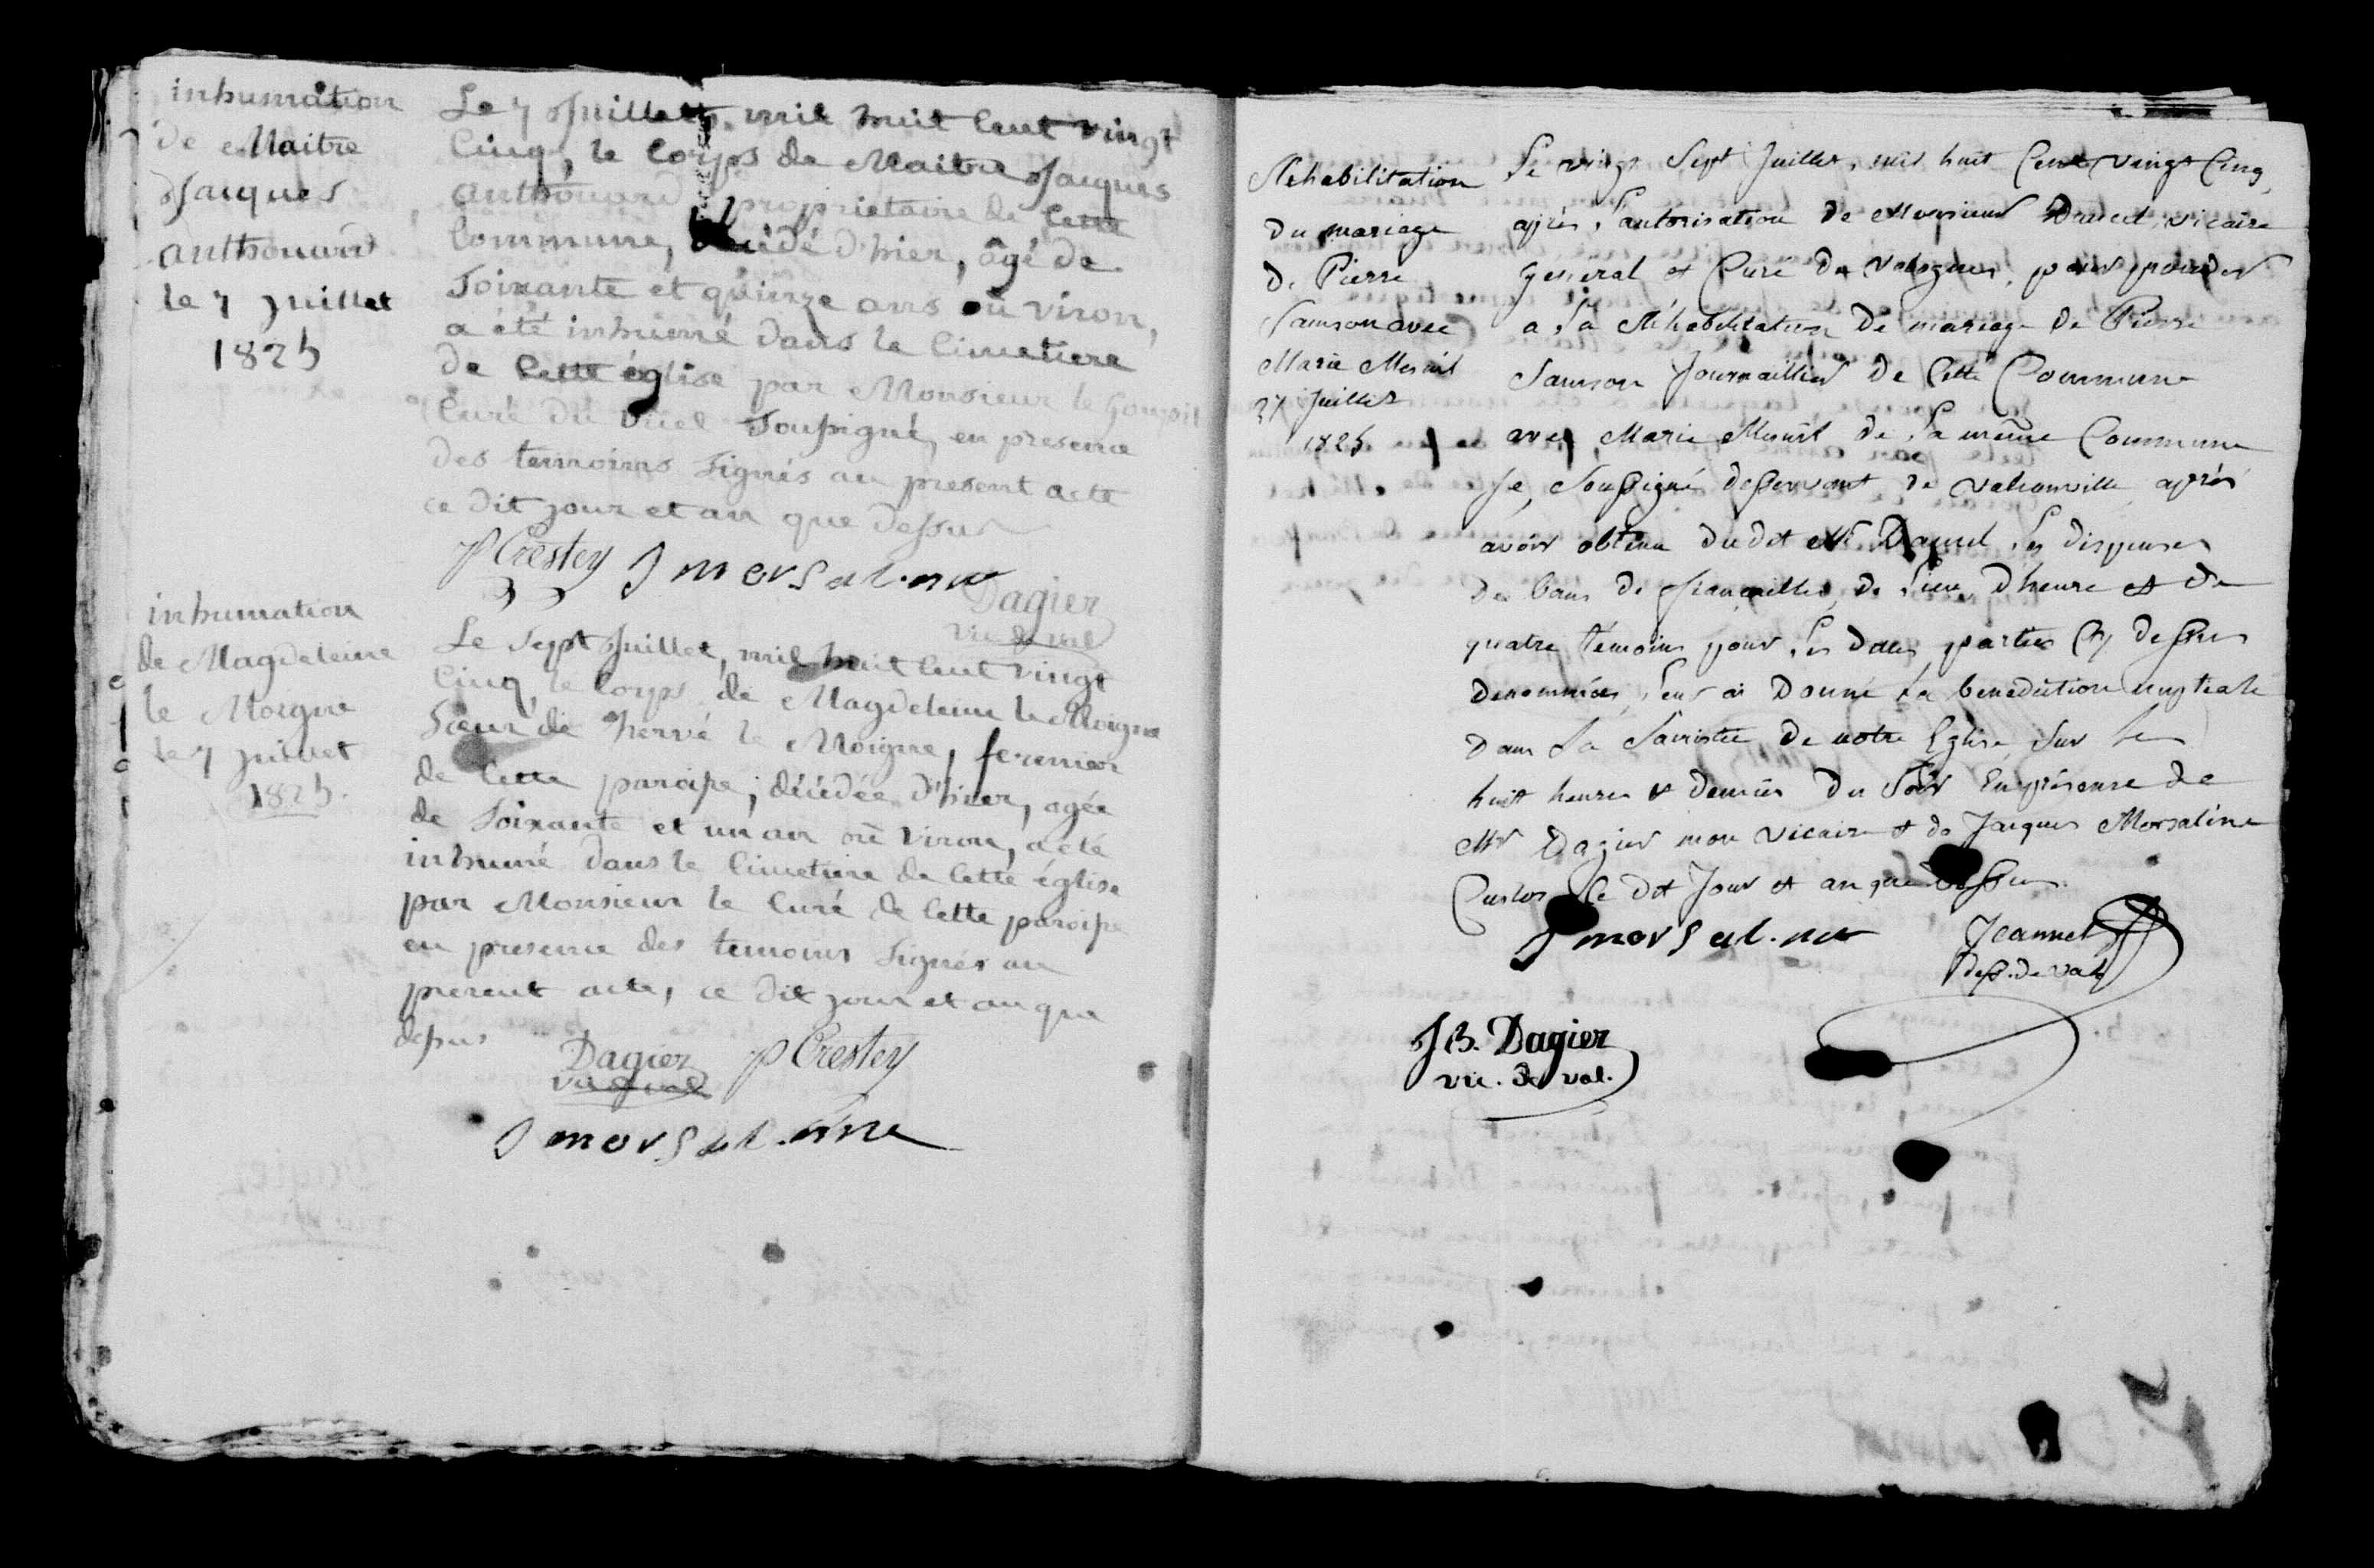 inhumation
de Maitre
Jacques
anthouard
le 7 juillet
1825
Le 7 Juillet, mil huit Cent vingt
Cinq, le Corps de Maitre Jacques
anthouard propriétaire de Cette
Commune, décédé d'hier, âgé de
Soixante et quinze ans ou viron,
a été inhumé dans le Cimetiere
de Cette église par Monsieur le Goupil
Curé du Vicel Soussigné, en presence
des temoins signés au present acte
ce dit jour et an que dessus
P Crestey J morsaline
Dagier
vic de val
inhumation
de Magdeleine
le Moigne
le 7 juillet
1825.
Le Sept Juillet, mil huit Cent vingt
Cinq, le Corps de Magdeleine le Moigne
Sœur de hervé le Moigne, fermier
de Cette paroisse, décédée d'hier, agée
de Soixante et un an ou viron, a été
inhumé dans le Cimetiere de Cette église
par Monsieur le Curé de Cette paroisse
en presence des temoins signés au
present acte, ce dit jour et an que
dessus
Dagier P Crestey
vic de val
J morsaline
Réhabilitation
du mariage
de Pierre
Samson avec
Marie Mesnil
27 Juillet
1825
Le vingt Sept Juillet, mil huit Cent vingt Cinq,
après l'autorisation de Monsieur vicaire
general et Curé de Valognes, pour proceder
a la Réhabilitation de mariage de Pierre
Samson Journaillier de Cette Commune
avec Marie Mesnil de la même Commune
Je, Soussigné desservant de valcanville après
avoir obtenu dudit Mr les dispenses
de bans de fiançailles, de lieu, d'heure et de
quatre témoins pour les deux parties Cy dessus
denommées, leur ai Donné la benediction nuptiale
dans la Sacristie de notre Eglise Sur les
huit heures et demies du Soir En présence de
Mr Dagier mon vicaire et de Jacques Morsaline
Custos Ce dit Jour et an que dessus.
J morsaline Jeannet
dess. de val
J B. Dagier
vic. de val.